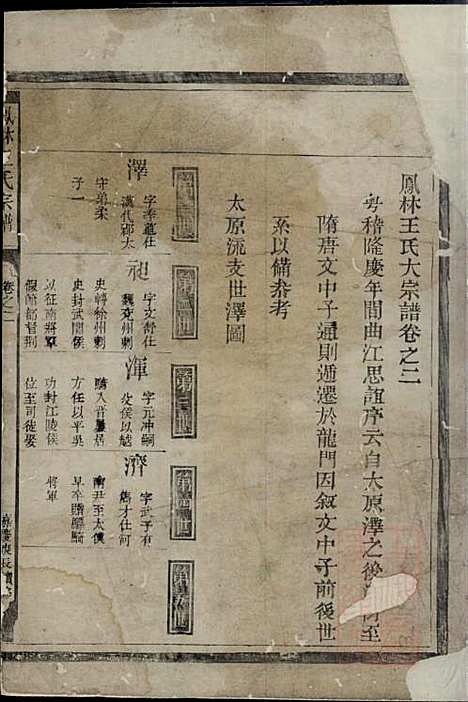 鳳林王氏大宗譜卷之二
粤稽隆慶年間曲江思誼序云自太原澤之後
至
隋唐文中子通則遁遷於龍門因叙文中子前後世
系以備叅考
太原流支世澤圖
第一世
第二世
第三世
第四世
第五世
澤
字季道仕
漢代郡太
守弟柔
子一
昶
字文舒仕
魏兖州刺
史轉徐州刺
史封武關侯
以征南將軍
假節都督荆
渾
字元冲嗣
父侯以越
騎入晉累居
方任以平吳
功封江陵侯
位至司徒娶
濟
字武子有
儁才仕河
南尹至太僕
早卒贈驃騎
將軍
鳳林王氏宗譜
卷之二